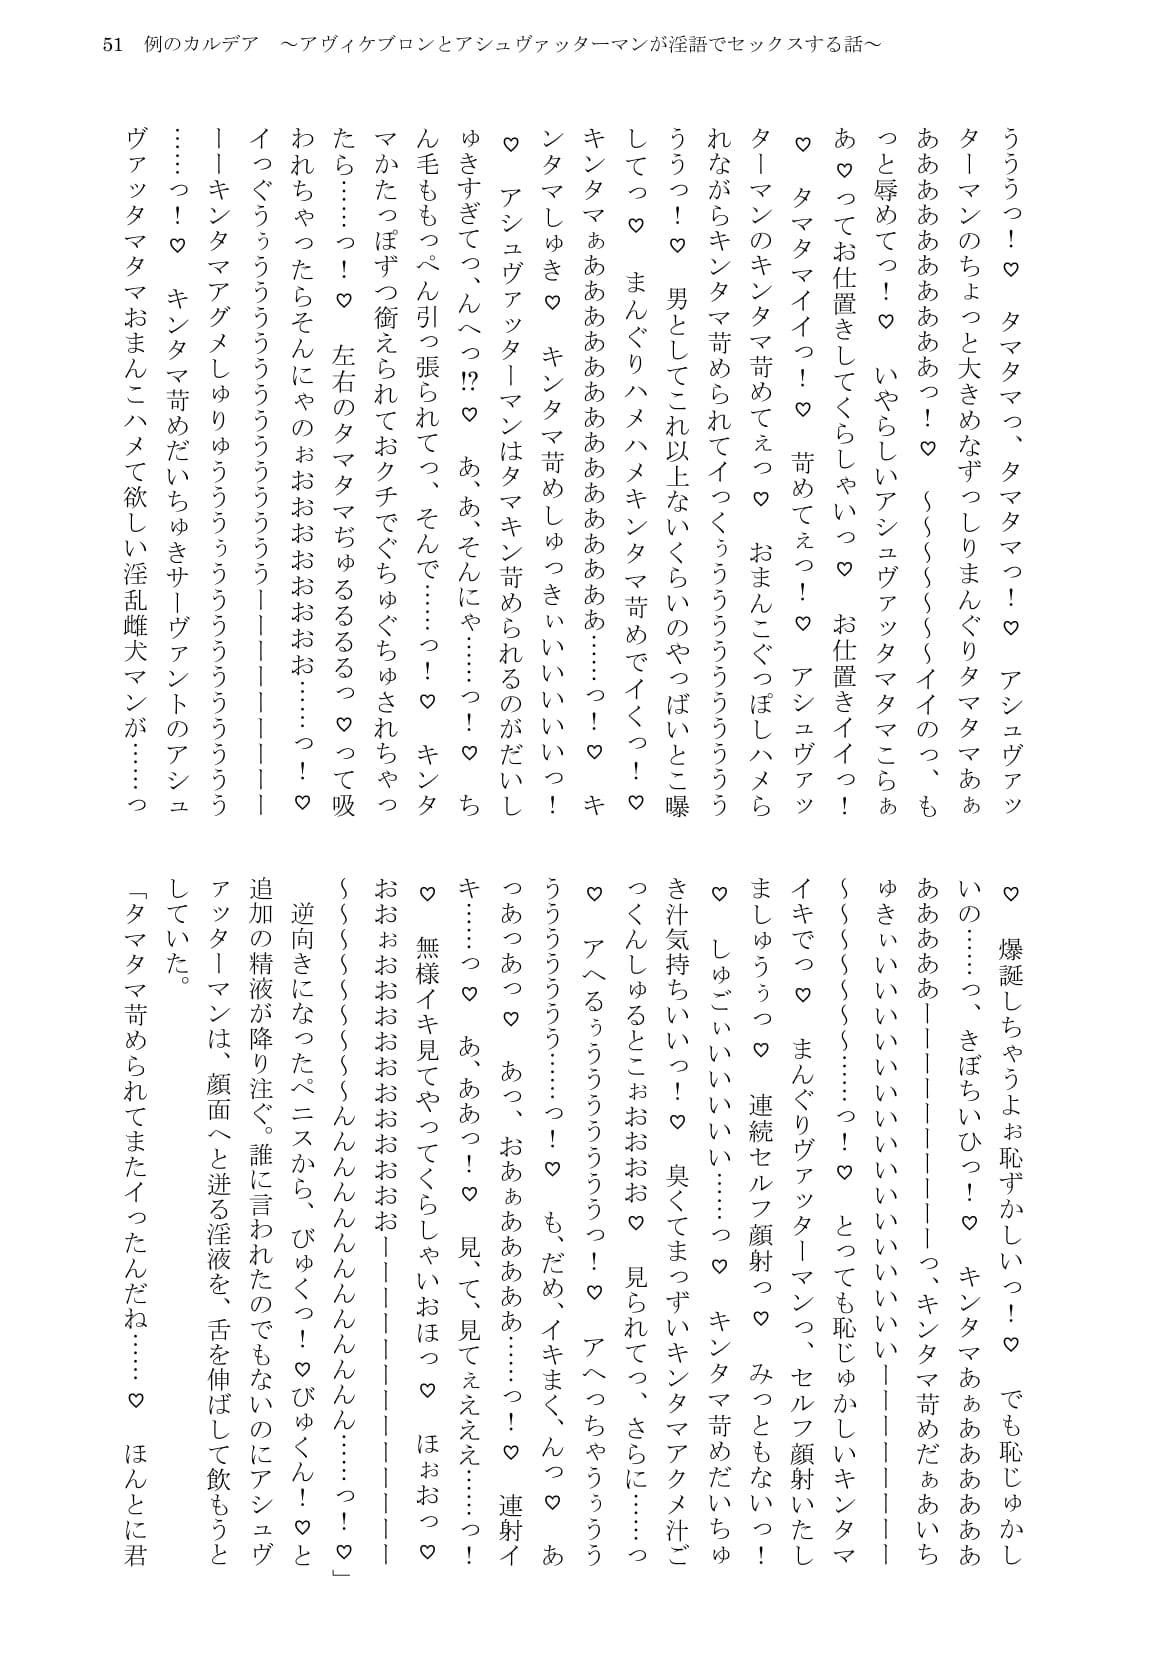 51 例のカルデア　～アヴィケブロンとアシュヴァッターマンが淫語でセックスする話～
うううっ！♡　タマタマっ、タマタマっ！♡　アシュヴァッ
ターマンのちょっと大きめなずっしりまんぐりタマタマあぁ
ああああああああああっ！♡　～～～～～～～イイのっ、も
っと辱めてっ！♡　いやらしいアシュヴァッタマタマこらぁ
あ♡ってお仕置きしてくらしゃいっ♡　お仕置きイイっ！
♡　タマタマイイっ！♡　苛めてぇっ！♡　アシュヴァッ
ターマンのキンタマ苛めてぇっ♡　おまんこぐっぽしハメら
れながらキンタマ苛められてイっくぅううううううううう
ううっ！♡　男としてこれ以上ないくらいのやっばいとこ曝
してっ♡　まんぐりハメハメキンタマ苛めでイくっ！♡
キンタマぁああああああああああああああ……っ！♡　キ
ンタマしゅき♡　キンタマ苛めしゅっきぃいいいいいっ！
♡　アシュヴァッターマンはタマキン苛められるのがだいし
ゅきすぎてっ、んへっ!?♡　あ、あ、そんにゃ……っ！♡　ち
ん毛ももっぺん引っ張られてっ、そんで……っ！♡　キンタ
マかたっぽずつ銜えられておクチでぐちゅぐちゅされちゃっ
たら……っ！♡　左右のタマタマぢゅるるるるっ♡って吸
われちゃったらそんにゃのぉおおおおおおおお……っ！♡
イっぐうぅううううううううううううーーーーーーーーー
ーーキンタマアグメしゅりゅうううぅううううううううう
……っ！♡　キンタマ苛めだいちゅきサーヴァントのアシュ
ヴァッタマタマおまんこハメて欲しい淫乱雌犬マンが……っ
♡　爆誕しちゃうよぉ恥ずかしいっ！♡　でも恥じゅかし
いの……っ、きぼちいひっ！♡　キンタマあぁああああああ
あああああーーーーーーーーーーっ、キンタマ苛めだぁあいち
ゅきぃいいいいいいいいいいいいいいいいーーーーーーーー
～～～～～～～～……っ！♡　とっても恥じゅかしいキンタマ
イキでっ♡　まんぐりヴァッターマンっ、セルフ顔射いたし
ましゅうぅっ♡　連続セルフ顔射っ♡　みっともないっ！
♡　しゅごぃいいいいい……っ♡　キンタマ苛めだいちゅ
き汁気持ちいいっ！♡　臭くてまっずいキンタマアクメ汁ご
っくんしゅるとこぉおおおお♡　見られてっ、さらに……っ
♡　アへるぅうううううううっ！♡　アへっちゃうぅうう
うううううううう……っ！♡　も、だめ、イキまく、んっ♡　あ
っあっあっ♡　あっ、おあぁああああああ……っ！♡　連射イ
キ……っ♡　あ、ああっ！♡　見、て、見てぇえええ……っ！
♡　無様イキ見てやってくらしゃいおほっ♡　ほぉおっ♡
おおぉおおおおおおおおおおおーーーーーーーーーーーーー
～～～～～～～～～んんんんんんんんんんんんん……っ！♡」
　逆向きになったペニスから、びゅくっ！♡びゅくん！♡と
追加の精液が降り注ぐ。誰に言われたのでもないのにアシュヴ
ァッターマンは、顔面へと迸る淫液を、舌を伸ばして飲もうと
していた。
「タマタマ苛められてまたイったんだね……♡　ほんとに君